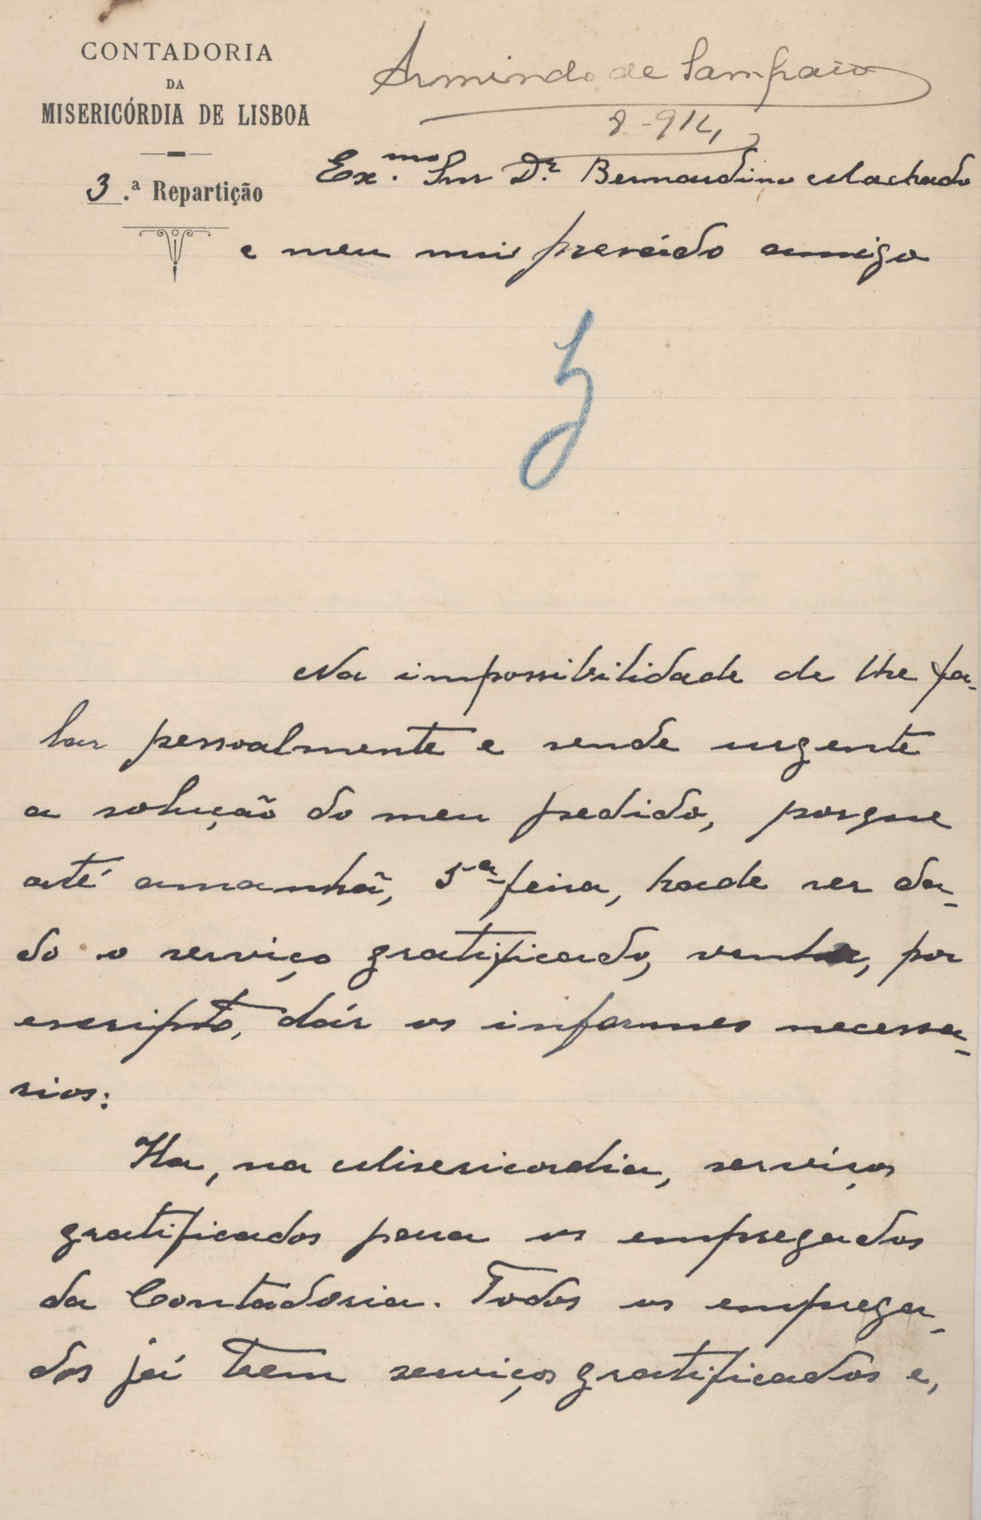 CONTADORIA
DA
MISERICÓRDIA DE LISBOA
3.ª Repartição
Armindo de Sampaio
8-914
Ex.mo Snr Dr. Bernardino Machado
e meu mui presádo amigo
Na impossibilidade de lhe fa-
lar pessoalmente e sendo urgente
a solução do meu pedido, porque
até amanhã, 5ª feira, hade ser da-
do o serviço gratificado, venho, por
escripto, dár os informes necessa-
rios:
Ha, na Misericordia, serviços
gratificados para os empregados
da Contadoria. Todos os emprega-
dos já teem serviços gratificados e,